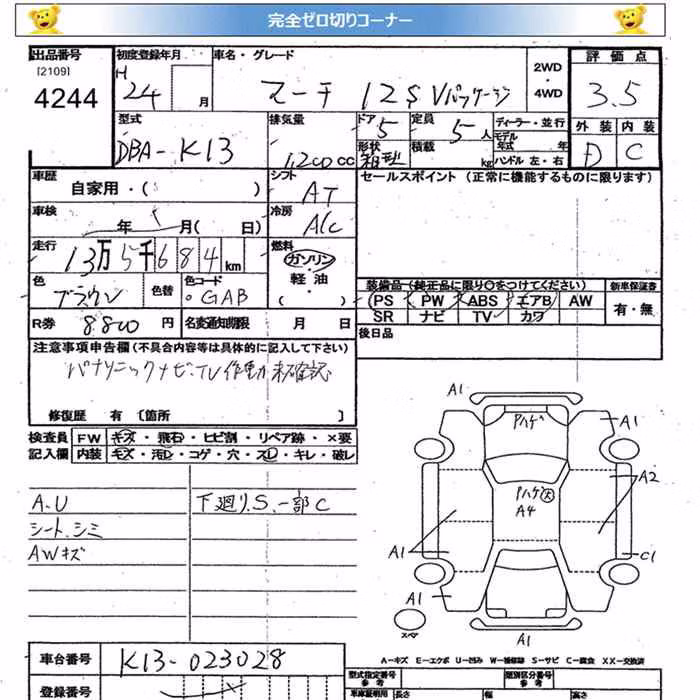 完全ゼロ切りコーナー
出品番号
[2109]
4244
初度登録年月
H
24
月
車名・グレード
マーチ 12S Vパッケージ
2WD
・
4WD
評価点
3.5
外装 内装
D C
型式
DBA-K13
排気量
1,200cc
ドア
5
形状
箱型
定員
5人
積載
kg
ディーラー・並行
モデル
年式 年
ハンドル 左・右
車歴
自家用・( )
シフト
AT
セールスポイント (正常に機能するものに限ります)
車検
年 月( 日)
冷房
A/C
走行
13万5千684km
燃料
ガソリン
・
軽油
・
( )
色
ブラウン
色替
色コード
・GAB
装備品(純正品に限り○をつけてください)
PS PW ABS エアB AW
SR ナビ TV カワ
新車保証書
有・無
R券 8,800円
名変通知期限 月 日
後日品
注意事項申告欄(不具合内容等は具体的に記入して下さい)
パナソニックナビ・TV作動未確認
修復歴 有 〔箇所 〕
検査員 FW キズ・飛石・ヒビ割・リペア跡・×要
記入欄 内装 キズ・汚レ・コゲ・穴・スレ・キレ・破レ
A.U
下廻り.S.一部C
シート.シミ
AWキズ
A1
Pハゲ
A1
A2
Pハゲ大
A4
A1
C1
A1
A1
A1
スペア
A-キズ E-エクボ U-凹み W-補修跡 S-サビ C-腐食 XX-交換済
車台番号 K13-023028
登録番号
型式指定番号
参考
類別区分番号
参考
車庫証明用
長さ
幅
高さ